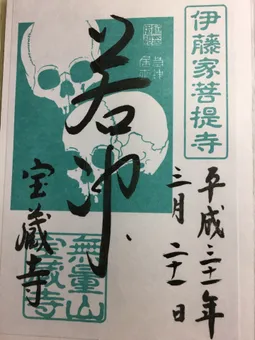 伊藤家菩提寺
平成三十一年
三月二十一日
若冲
無量山
宝蔵寺
宝蔵寺